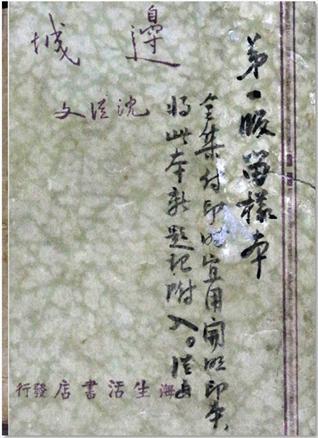 邊城
沈從文
第一版留樣本
全集付印时宜用開明印本，
將此本新題記附入。
海生活書店發行